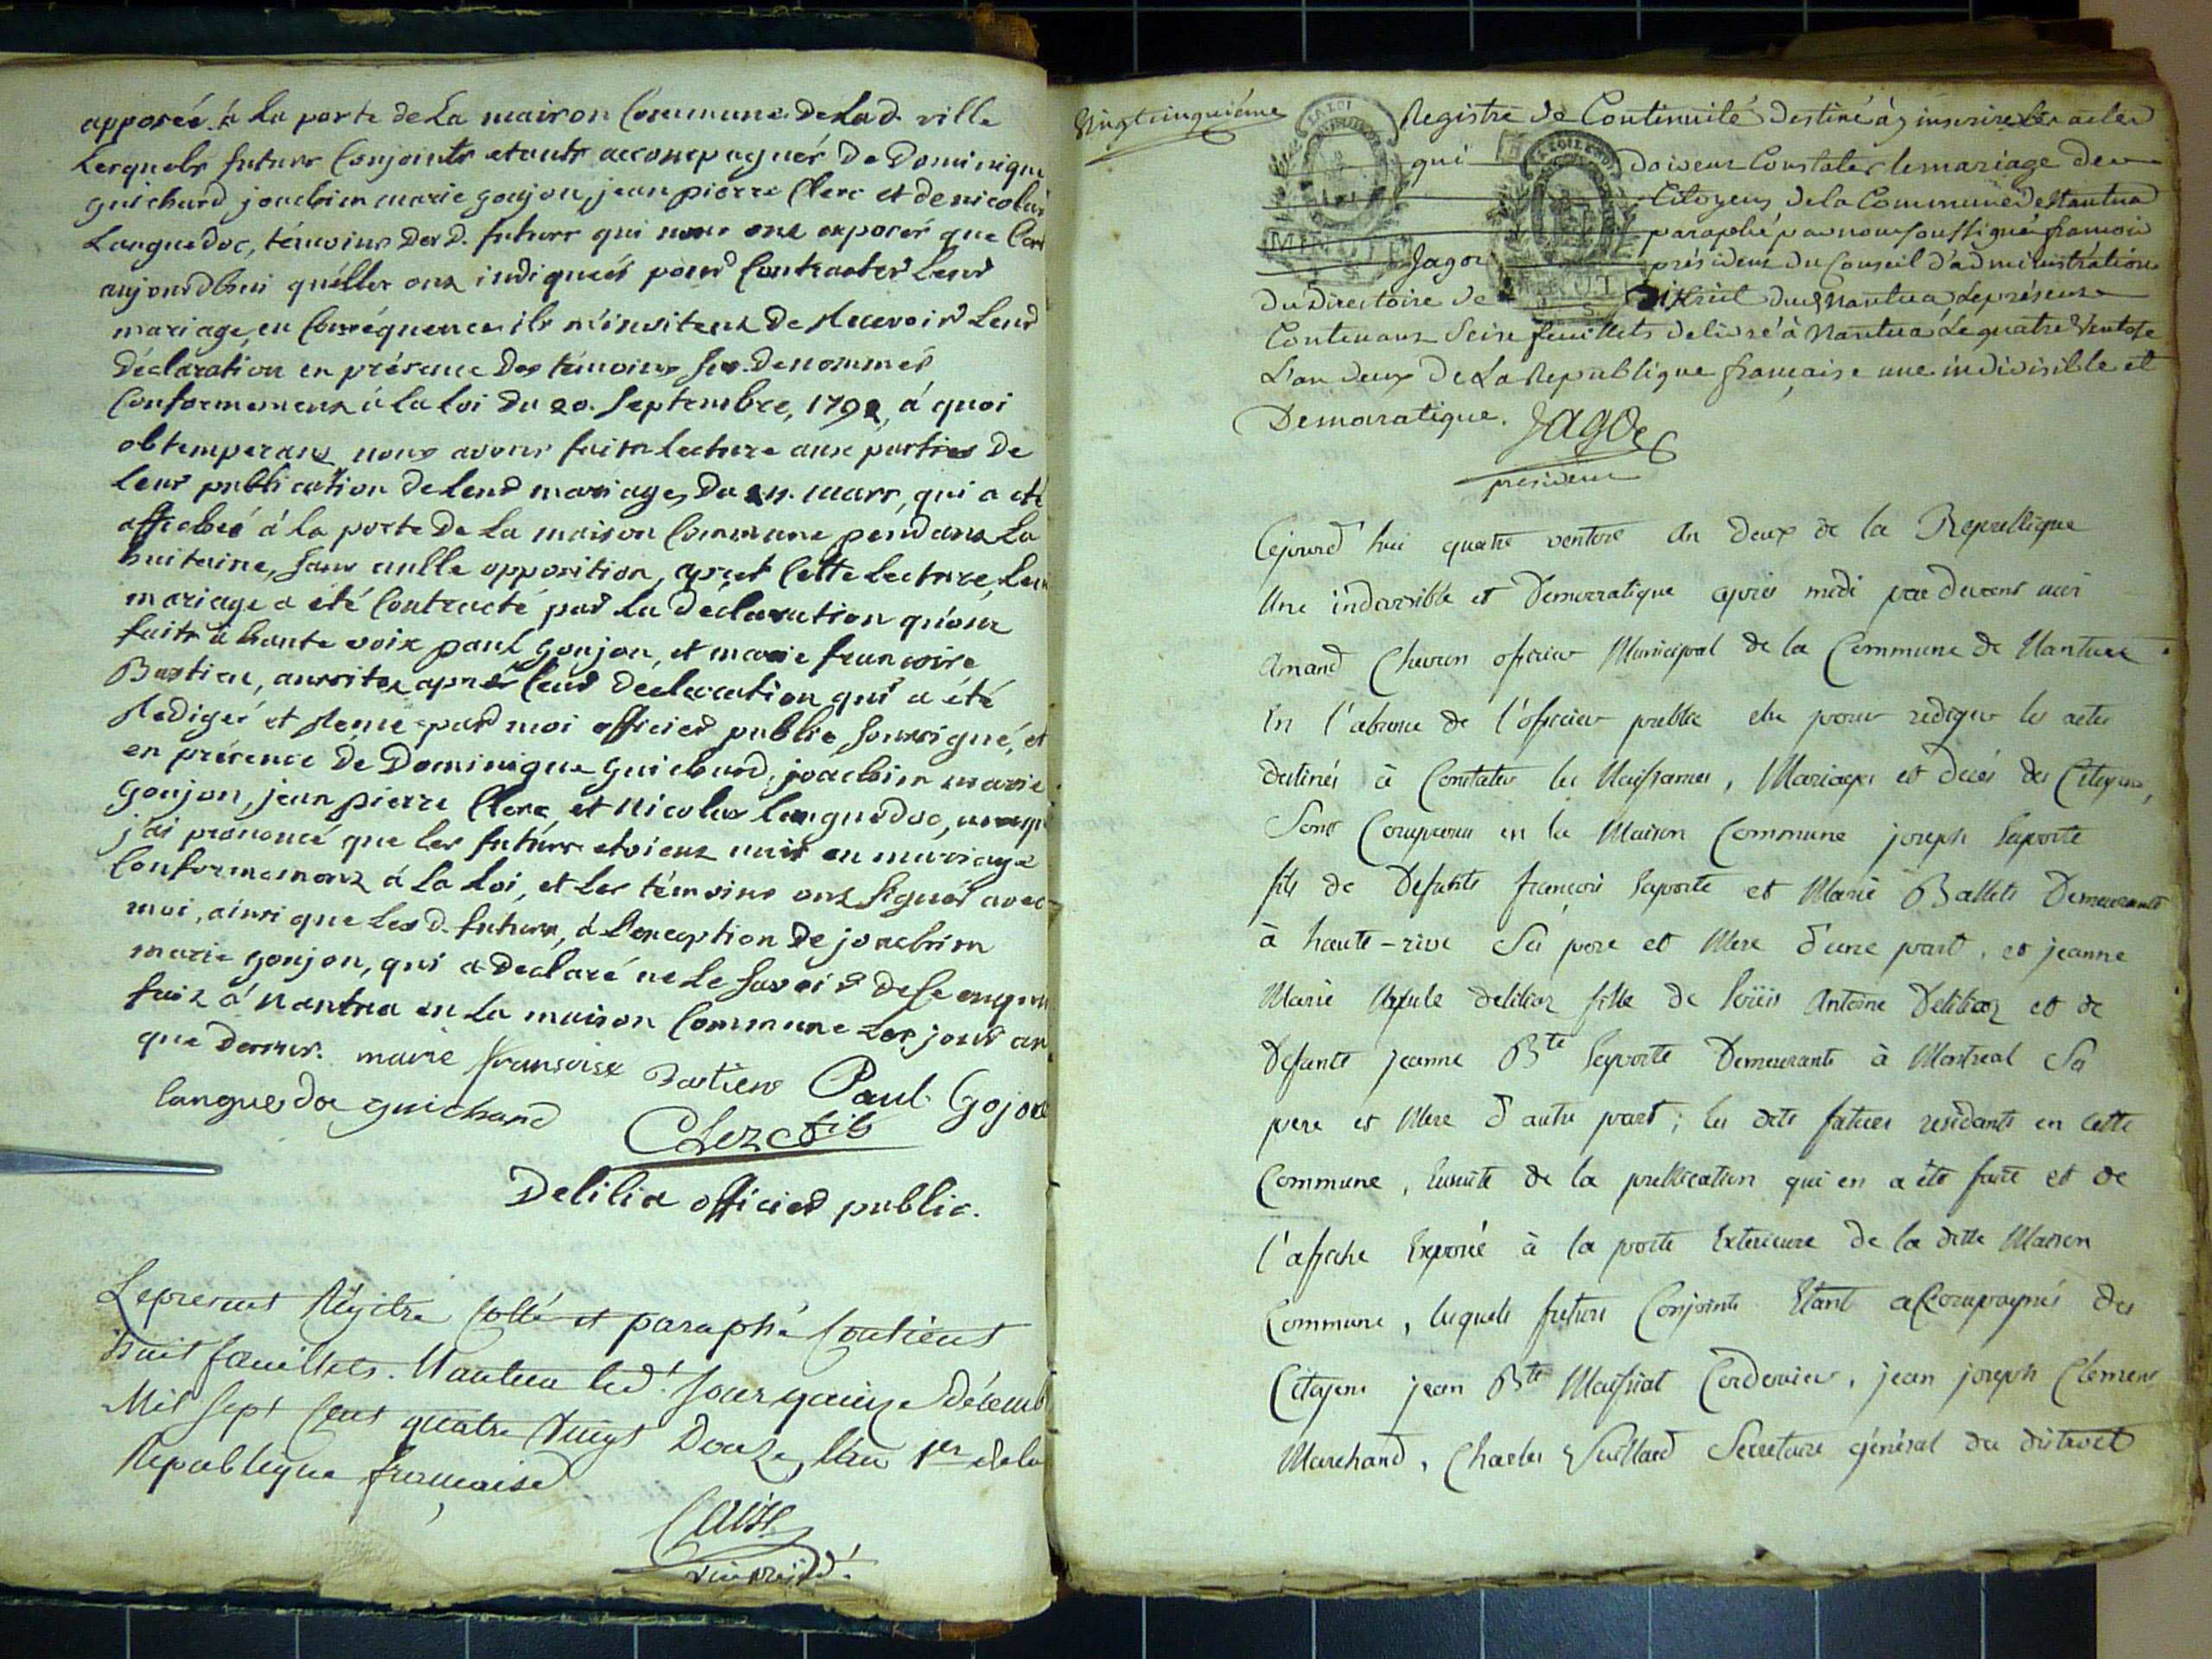 apposée à la porte de la maison Commune de lad. ville
lesquels futurs Conjoints etants accompagnés de Dominique
guichard joachim marie goujon, jean pierre Clerc et de nicolas
Languedoc, témoins desd. futurs qui nous ont exposés que
aujourdhui qu'elles ont indiquées pour Contracter leur
mariage, en Conséquence ils m'invitent de Recevoir leur
déclaration en présence des témoins sus-denommés
Conformement à la loi du 20. Septembre, 1792, à quoi
obtemperant nous avons fait lecture aux parties de
leur publication de leur mariage, du mars, qui a eté
affichée à la porte de la maison Commune pendant la
huitaine, sans nulle opposition, après Cette lecture, leur
mariage a été Contracté par la déclaration qu'ont
faite à haute voix paul goujon, et marie francoise
Bastien, aussitot après leur declaration qui a été
Redigée et par moi officier public soussigné, et
en présence de Dominique guichard, joachim marie
goujon, jean pierre Clerc, et Nicolas languedoc,
j'ai prononcé que les futurs etoient unis en mariage
Conformement à la loi, et les témoins ont signés avec
moi, ainsi que lesd. futurs, à l'exception de joachim
marie goujon, qui a declaré ne le savoir de ce enquis
fait à nantua en la maison Commune les jour an
que dessus. marie fransoise bastiens Paul Gojon
languedoc guichard Clerc fils
Delilia officier public.
Le present Régitre Collé et paraphé Contient
huit feuillets. Nantua led. jour quinze décemb
Mil sept Cent quatre vingt Douze, l'an 1er de la
Republique française
vice présid.
Vingtcinquième
Registre de Continuité destiné à y inscrire les actes
qui doivent Constater le mariage des
Citoyens de la Commune de Nantua
paraphé par nous soussigné françois
Jagot président du Conseil d'administration
du Directoire de District du Nantua, le présent
Contenant Seise feuillets délivré à Nantua le quatre Ventose
L'an deux De La Republique française une indivisible et
Democratique. Jagot
président
Cejourd'hui quatre ventose an deux de la Republique
Une indivisible et Democratique après midi par devant moi
Amand Chevron officier Municipal de la Commune de Nantua
en l'absence de l'officier public elu pour rediger les actes
destinés à Constater les Naissances, Mariages et decés des Citoyens,
Sont Comparus en la Maison Commune joseph laporte
fils de Defunts françois laporte et Marie Ballets Demeurants
à haute-rive Sés pere et Mere d'une part, et jeanne
Marie Ursule delilia fille de loüis Antoine Delilia et de
Defunte jeanne Bte laporte Demeurants à Montreal Sés
pere et Mere d'autre part; les dits futurs residants en cette
Commune, ensuite de la publication qui en a été faite et de
l'affiche Exposée à la porte Exterieure de la ditte Maison
Commune, lesquels futurs Conjoints Etant accompagnés des
Citoyens jean Bte Maissiat Cordonier, jean joseph Clement
Marchand, Charles Vuillard Secretaire général du district